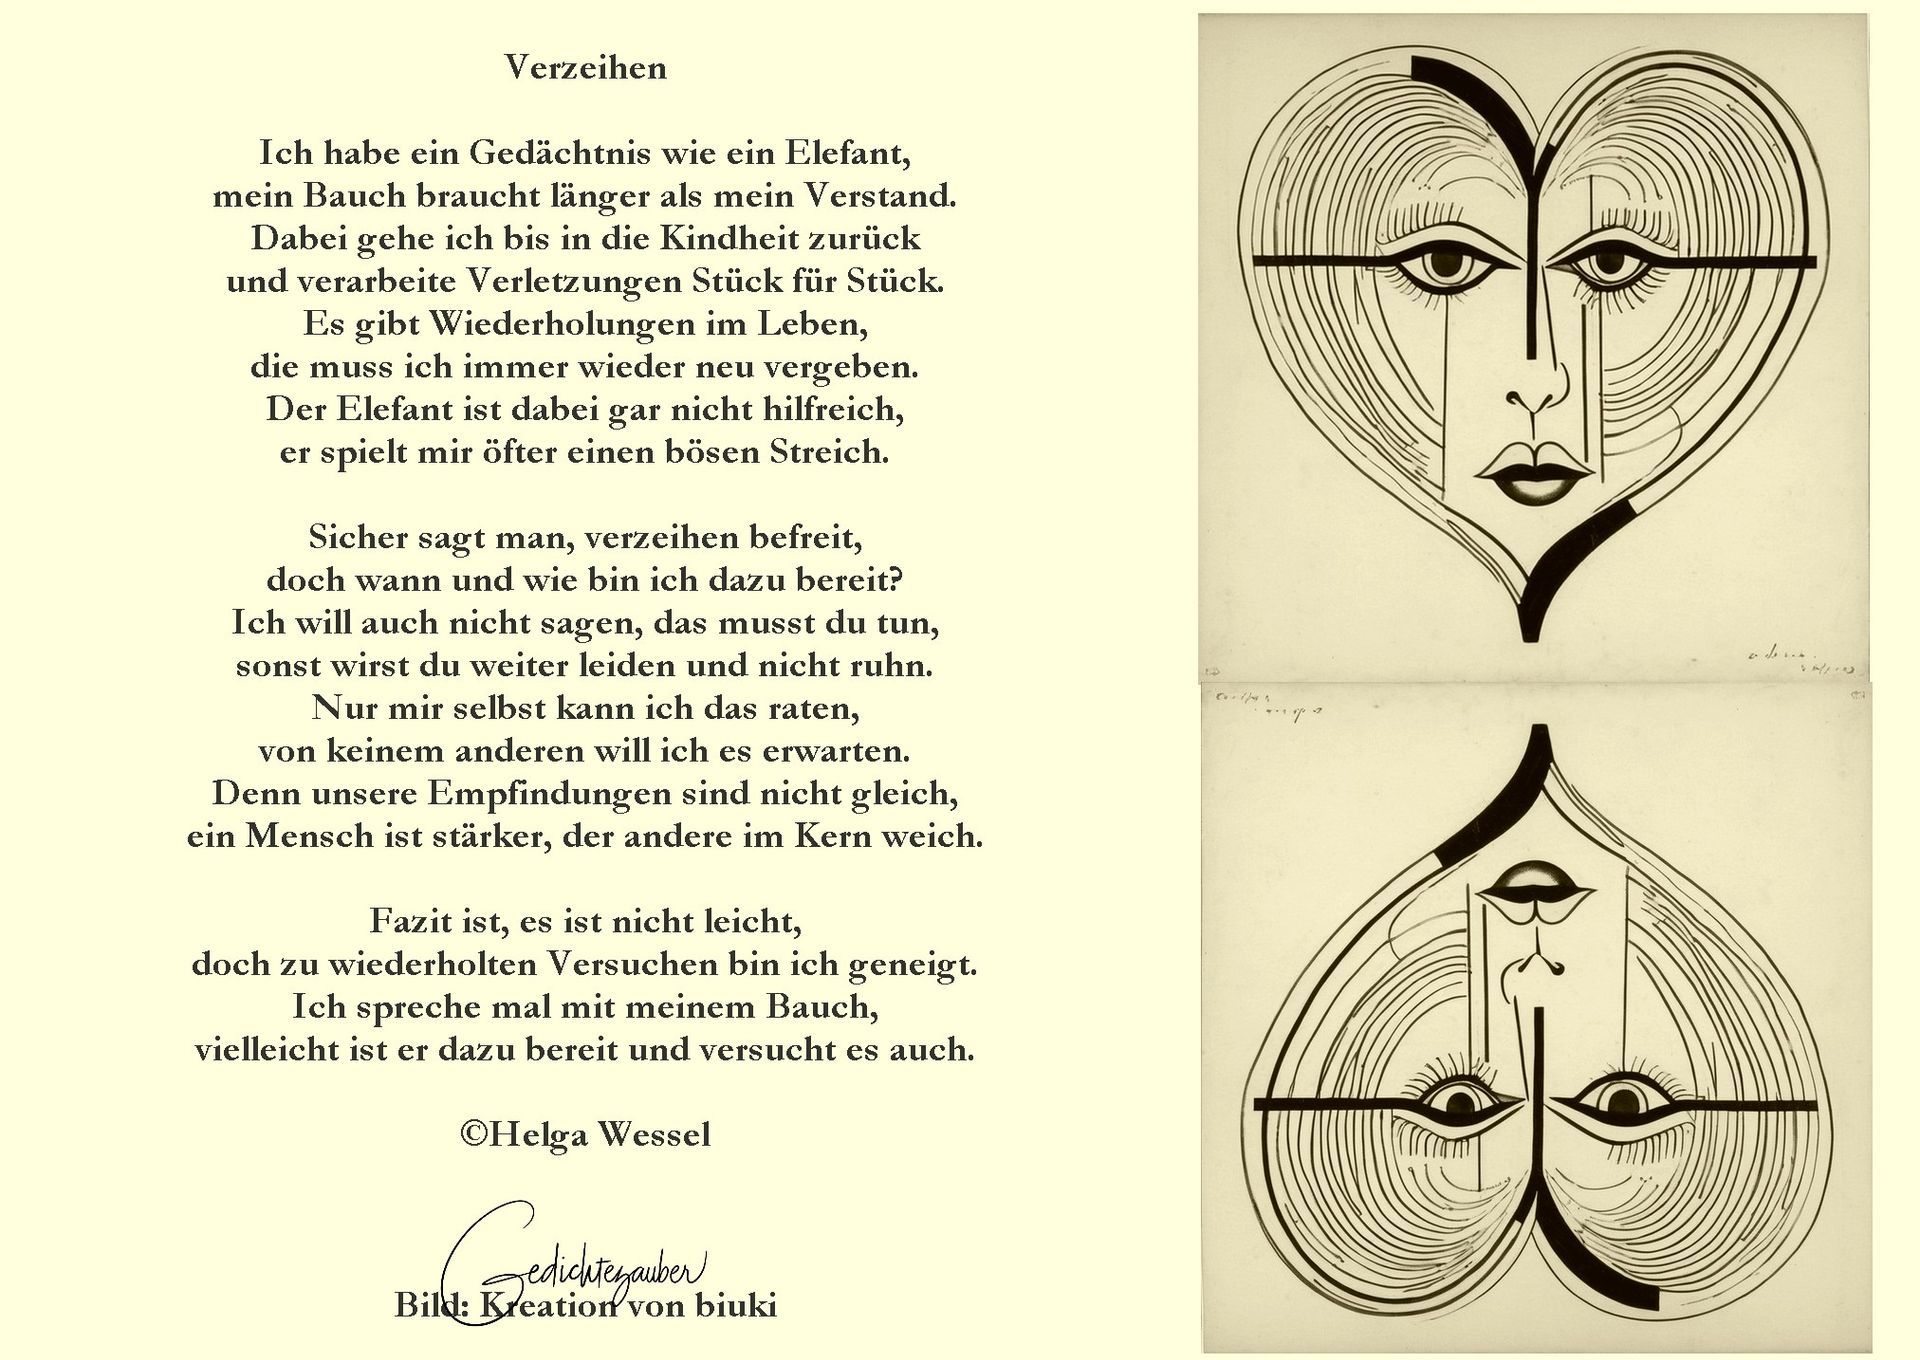 Verzeihen
Ich habe ein Gedächtnis wie ein Elefant,
mein Bauch braucht länger als mein Verstand.
Dabei gehe ich bis in die Kindheit zurück
und verarbeite Verletzungen Stück für Stück.
Es gibt Wiederholungen im Leben,
die muss ich immer wieder neu vergeben.
Der Elefant ist dabei gar nicht hilfreich,
er spielt mir öfter einen bösen Streich.
Sicher sagt man, verzeihen befreit,
doch wann und wie bin ich dazu bereit?
Ich will auch nicht sagen, das musst du tun,
sonst wirst du weiter leiden und nicht ruhn.
Nur mir selbst kann ich das raten,
von keinem anderen will ich es erwarten.
Denn unsere Empfindungen sind nicht gleich,
ein Mensch ist stärker, der andere im Kern weich.
Fazit ist, es ist nicht leicht,
doch zu wiederholten Versuchen bin ich geneigt.
Ich spreche mal mit meinem Bauch,
vielleicht ist er dazu bereit und versucht es auch.
©Helga Wessel
Gedichtezauber
Bild: Kreation von biuki